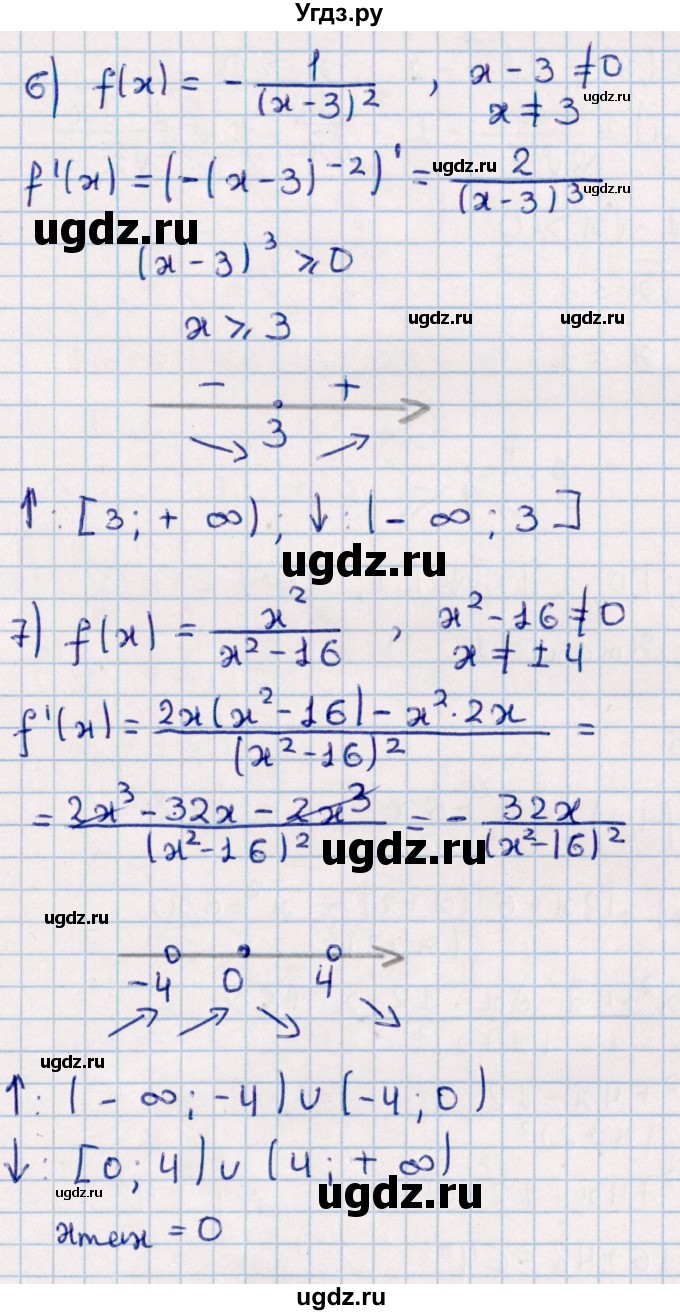 Угдз.ру
6) f(x) = - 1/(x-3)² , x - 3 ≠ 0
ugdz.ru
x ≠ 3
f'(x) = (-(x-3)⁻²)' = 2/(x-3)³
ugdz.ru
ugdz.ru
ugdz.ru
(x-3)³ ⩾ 0
x ⩾ 3
ugdz.ru
ugdz.ru
- +
3
↑: [3; + ∞); ↓: (- ∞; 3]
ugdz.ru
7) f(x) = x²/(x²-16) , x²-16 ≠ 0
x ≠ ±4
f'(x) = (2x(x²-16) - x²·2x)/(x²-16)² =
= (2x³ - 32x - 2x³)/(x²-16)² = - 32x/(x²-16)²
ugdz.ru
ugdz.ru
-4 0 4
ugdz.ru
↑: (- ∞; -4) ∪ (-4; 0)
↓: [0; 4) ∪ (4; + ∞)
ugdz.ru
ugdz.ru
xmax = 0